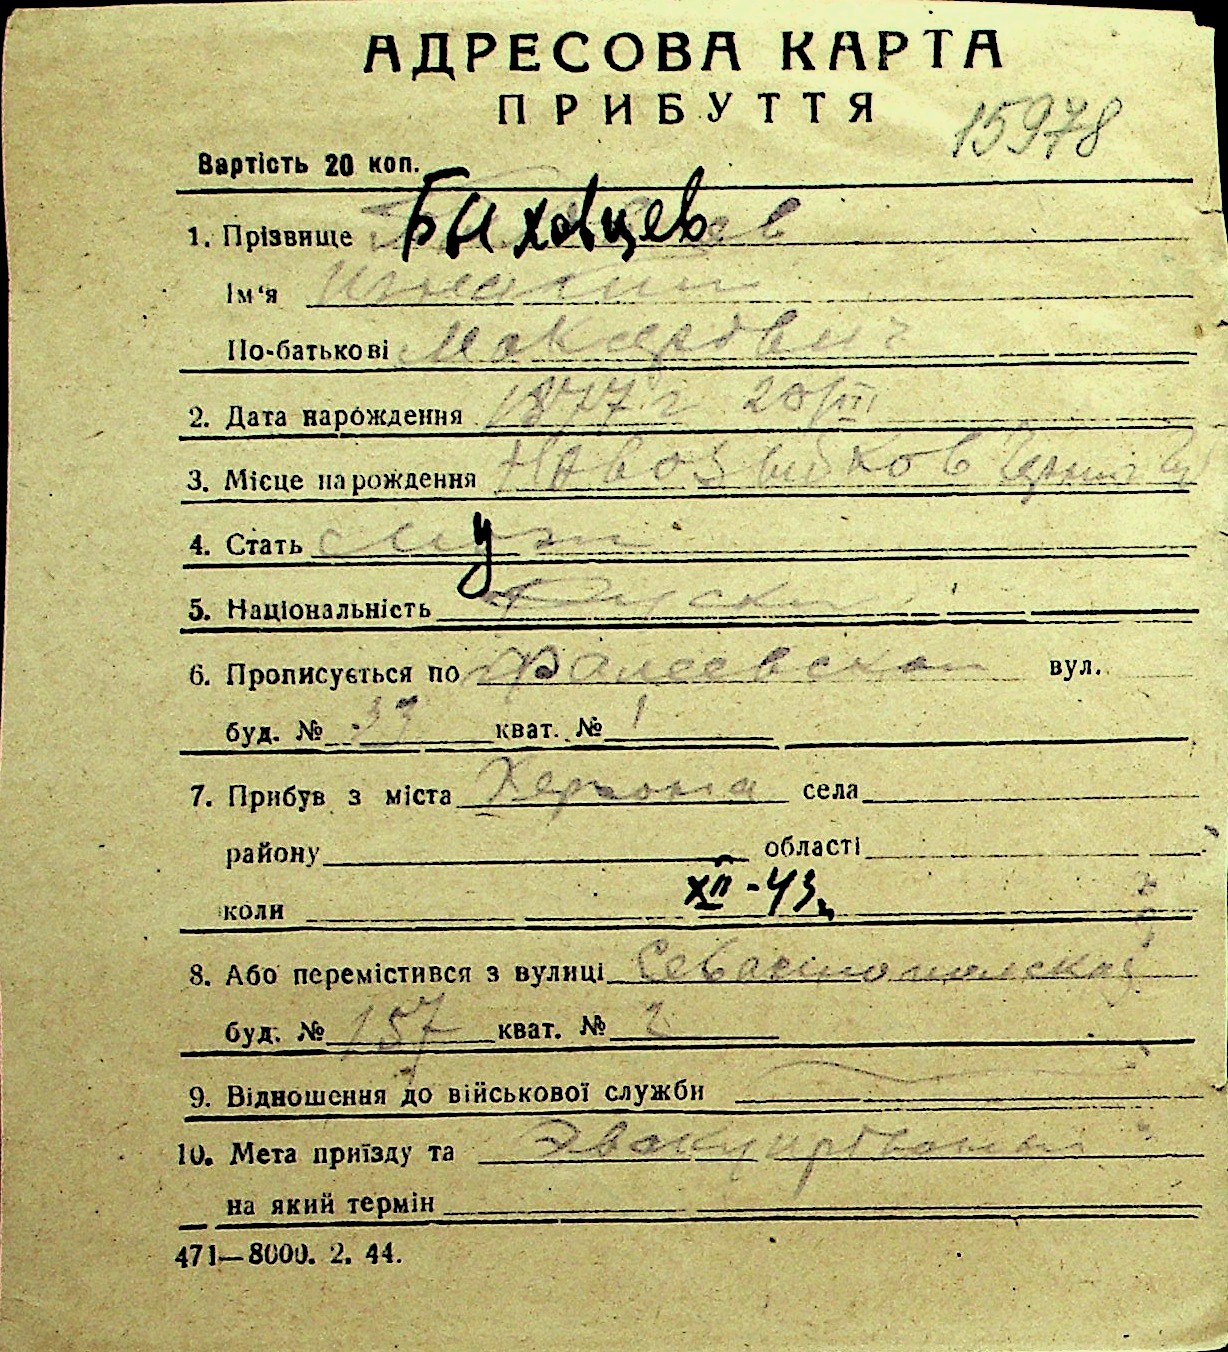 АДРЕСОВА КАРТА
ПРИБУТТЯ
15978
Вартість 20 коп.
1. Прізвище Быховцев
Ім'я Игнатий
По-батькові Макарович
2. Дата нарождення 1877 г 20/III
3. Місце нарождення Новозыбков Черниг Губ
4. Стать муж
5. Національність Руский
6. Прописується по Фалеевской вул.
буд. № 37 кват. № 1
7. Прибув з міста Херсона села
району області
коли XII-43г
8. Або перемістився з вулиці Севастопольской
буд. № 157 кват. № 2
9. Відношення до військової служби
10. Мета приїзду та Эвакуирован
на який термін
471—8000. 2. 44.